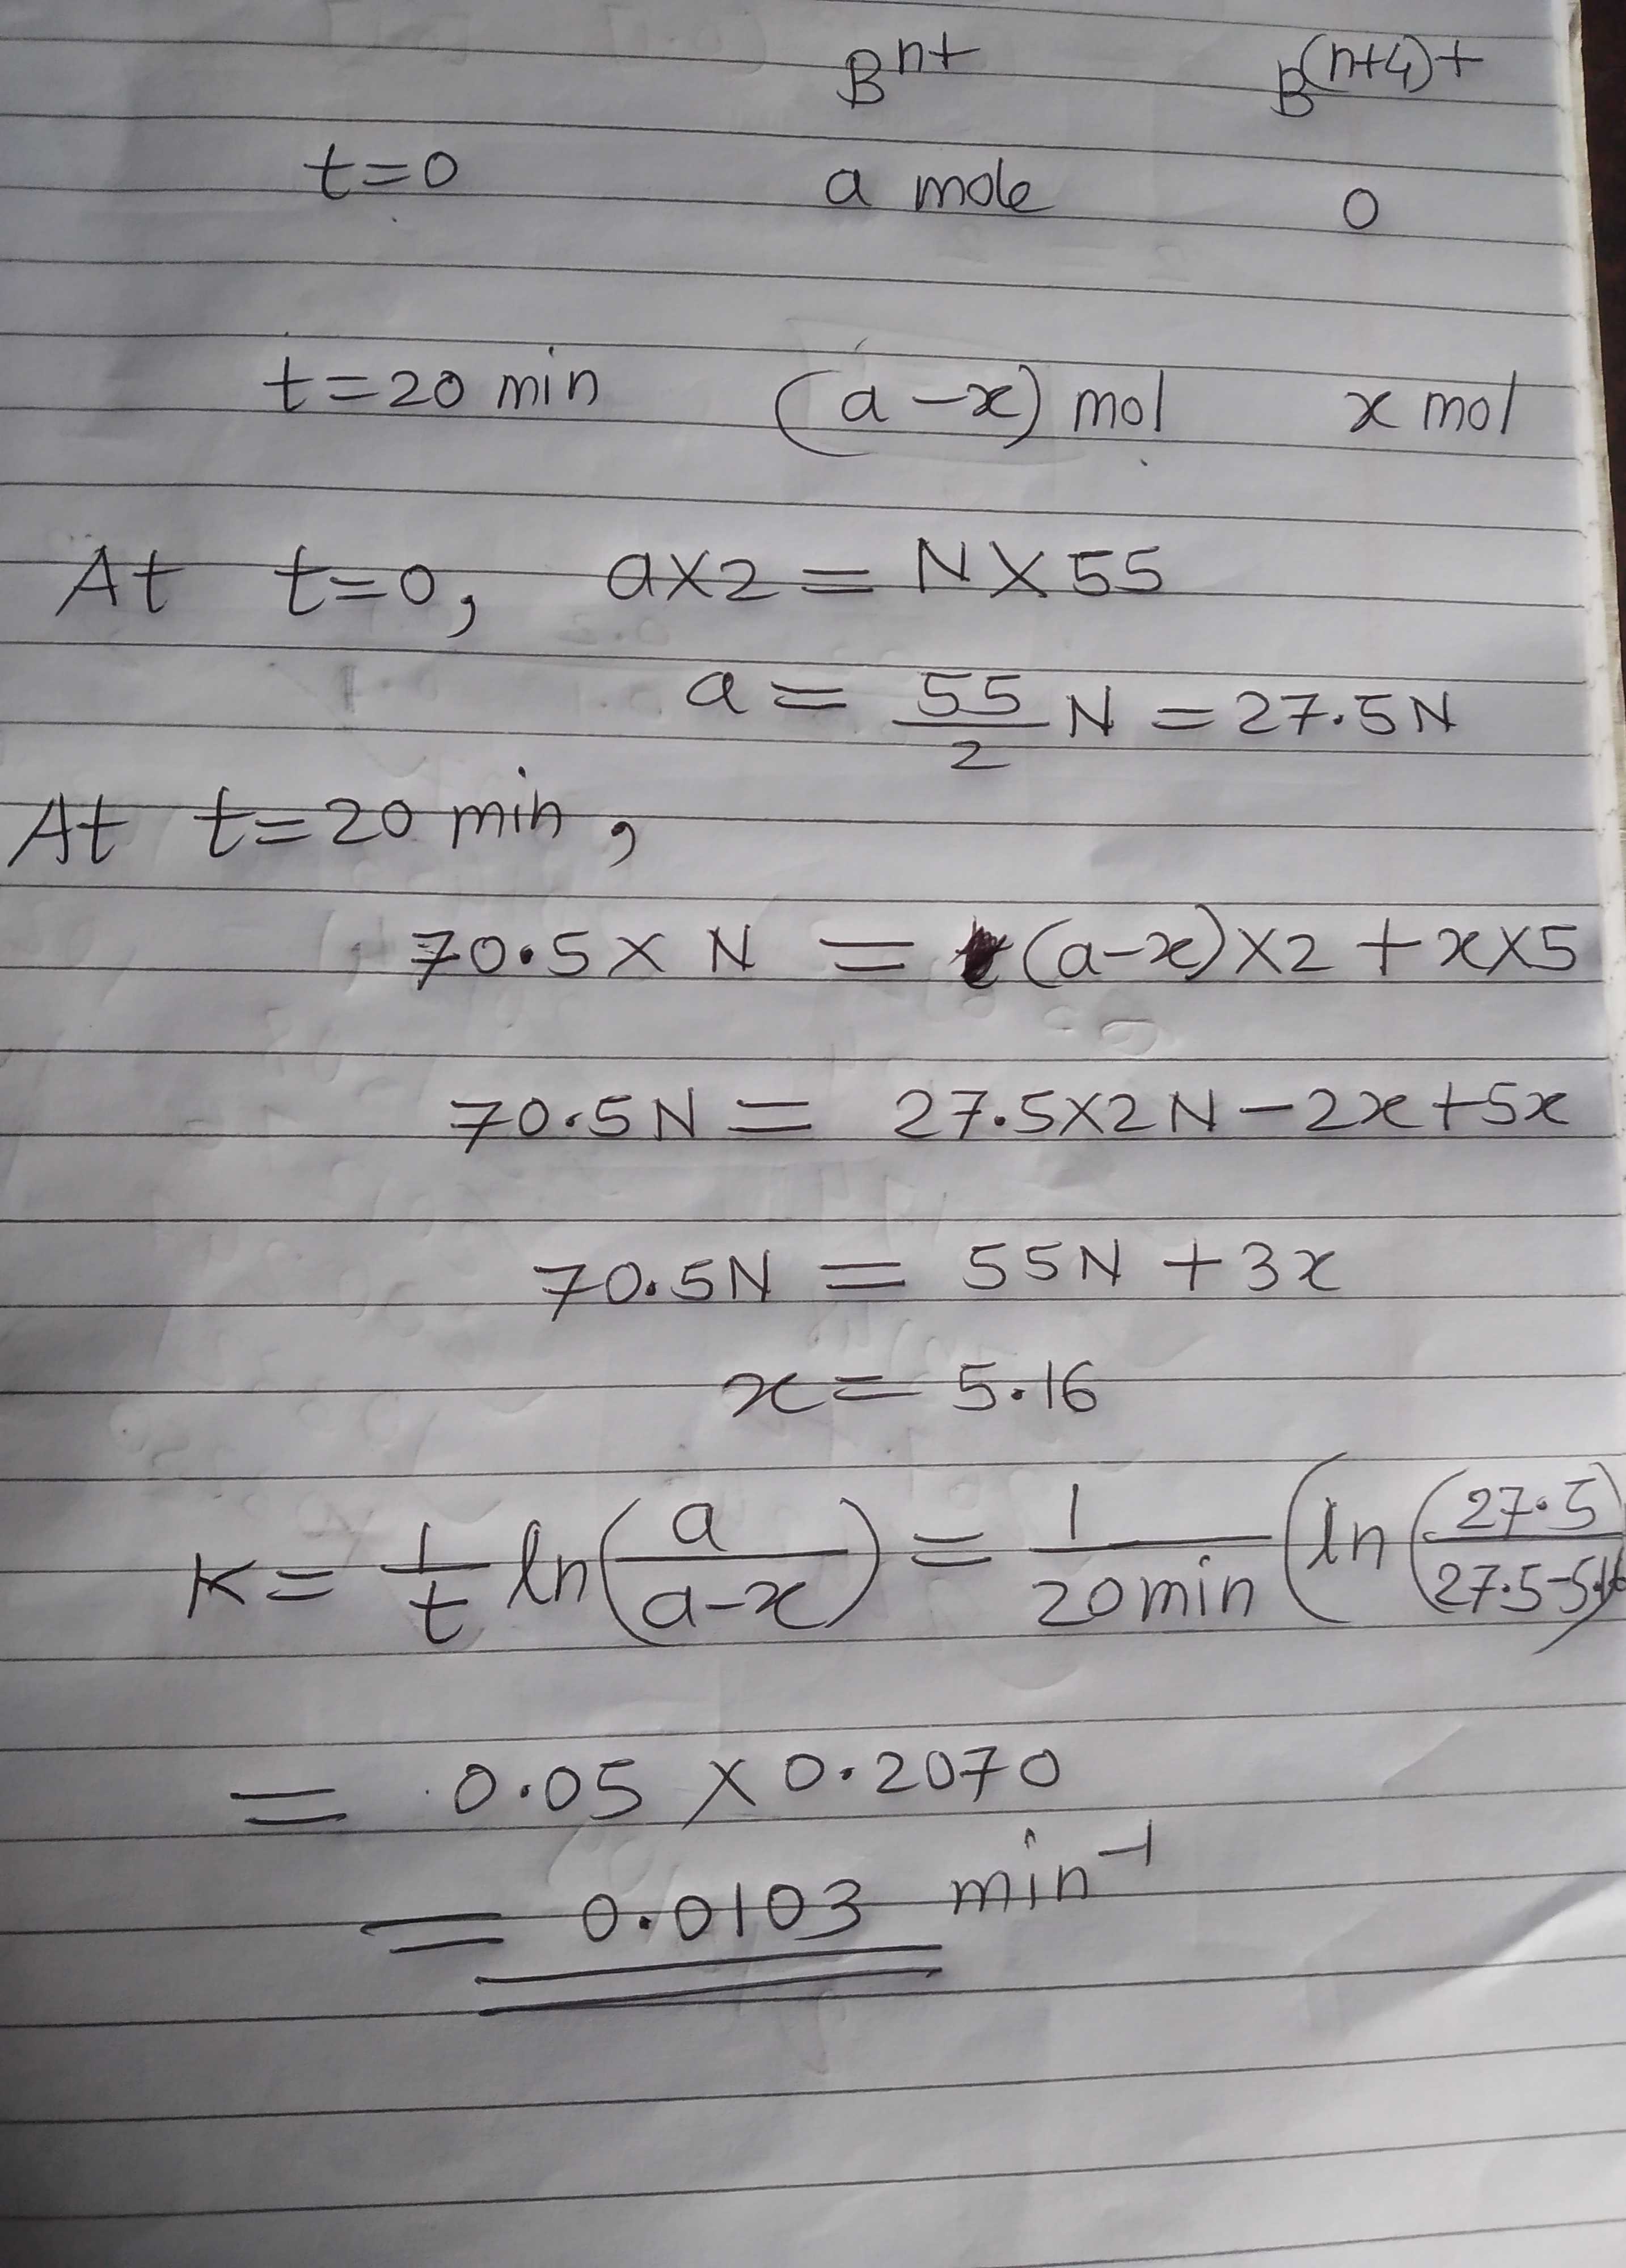 B^n+ B^(n+4)+
t=0 a mole 0
t=20 min (a-x) mol x mol
At t=0, a×2 = N×55
a = 55/2 N = 27.5N
At t=20 min,
70.5×N = (a-x)×2+x×5
70.5N = 27.5×2N-2x+5x
70.5N = 55N+3x
x = 5.16
K = 1/t ln(a/a-x) = 1/20min (ln(27.5/27.5-5.16)
= 0.05 × 0.2070
= 0.0103 min^-1